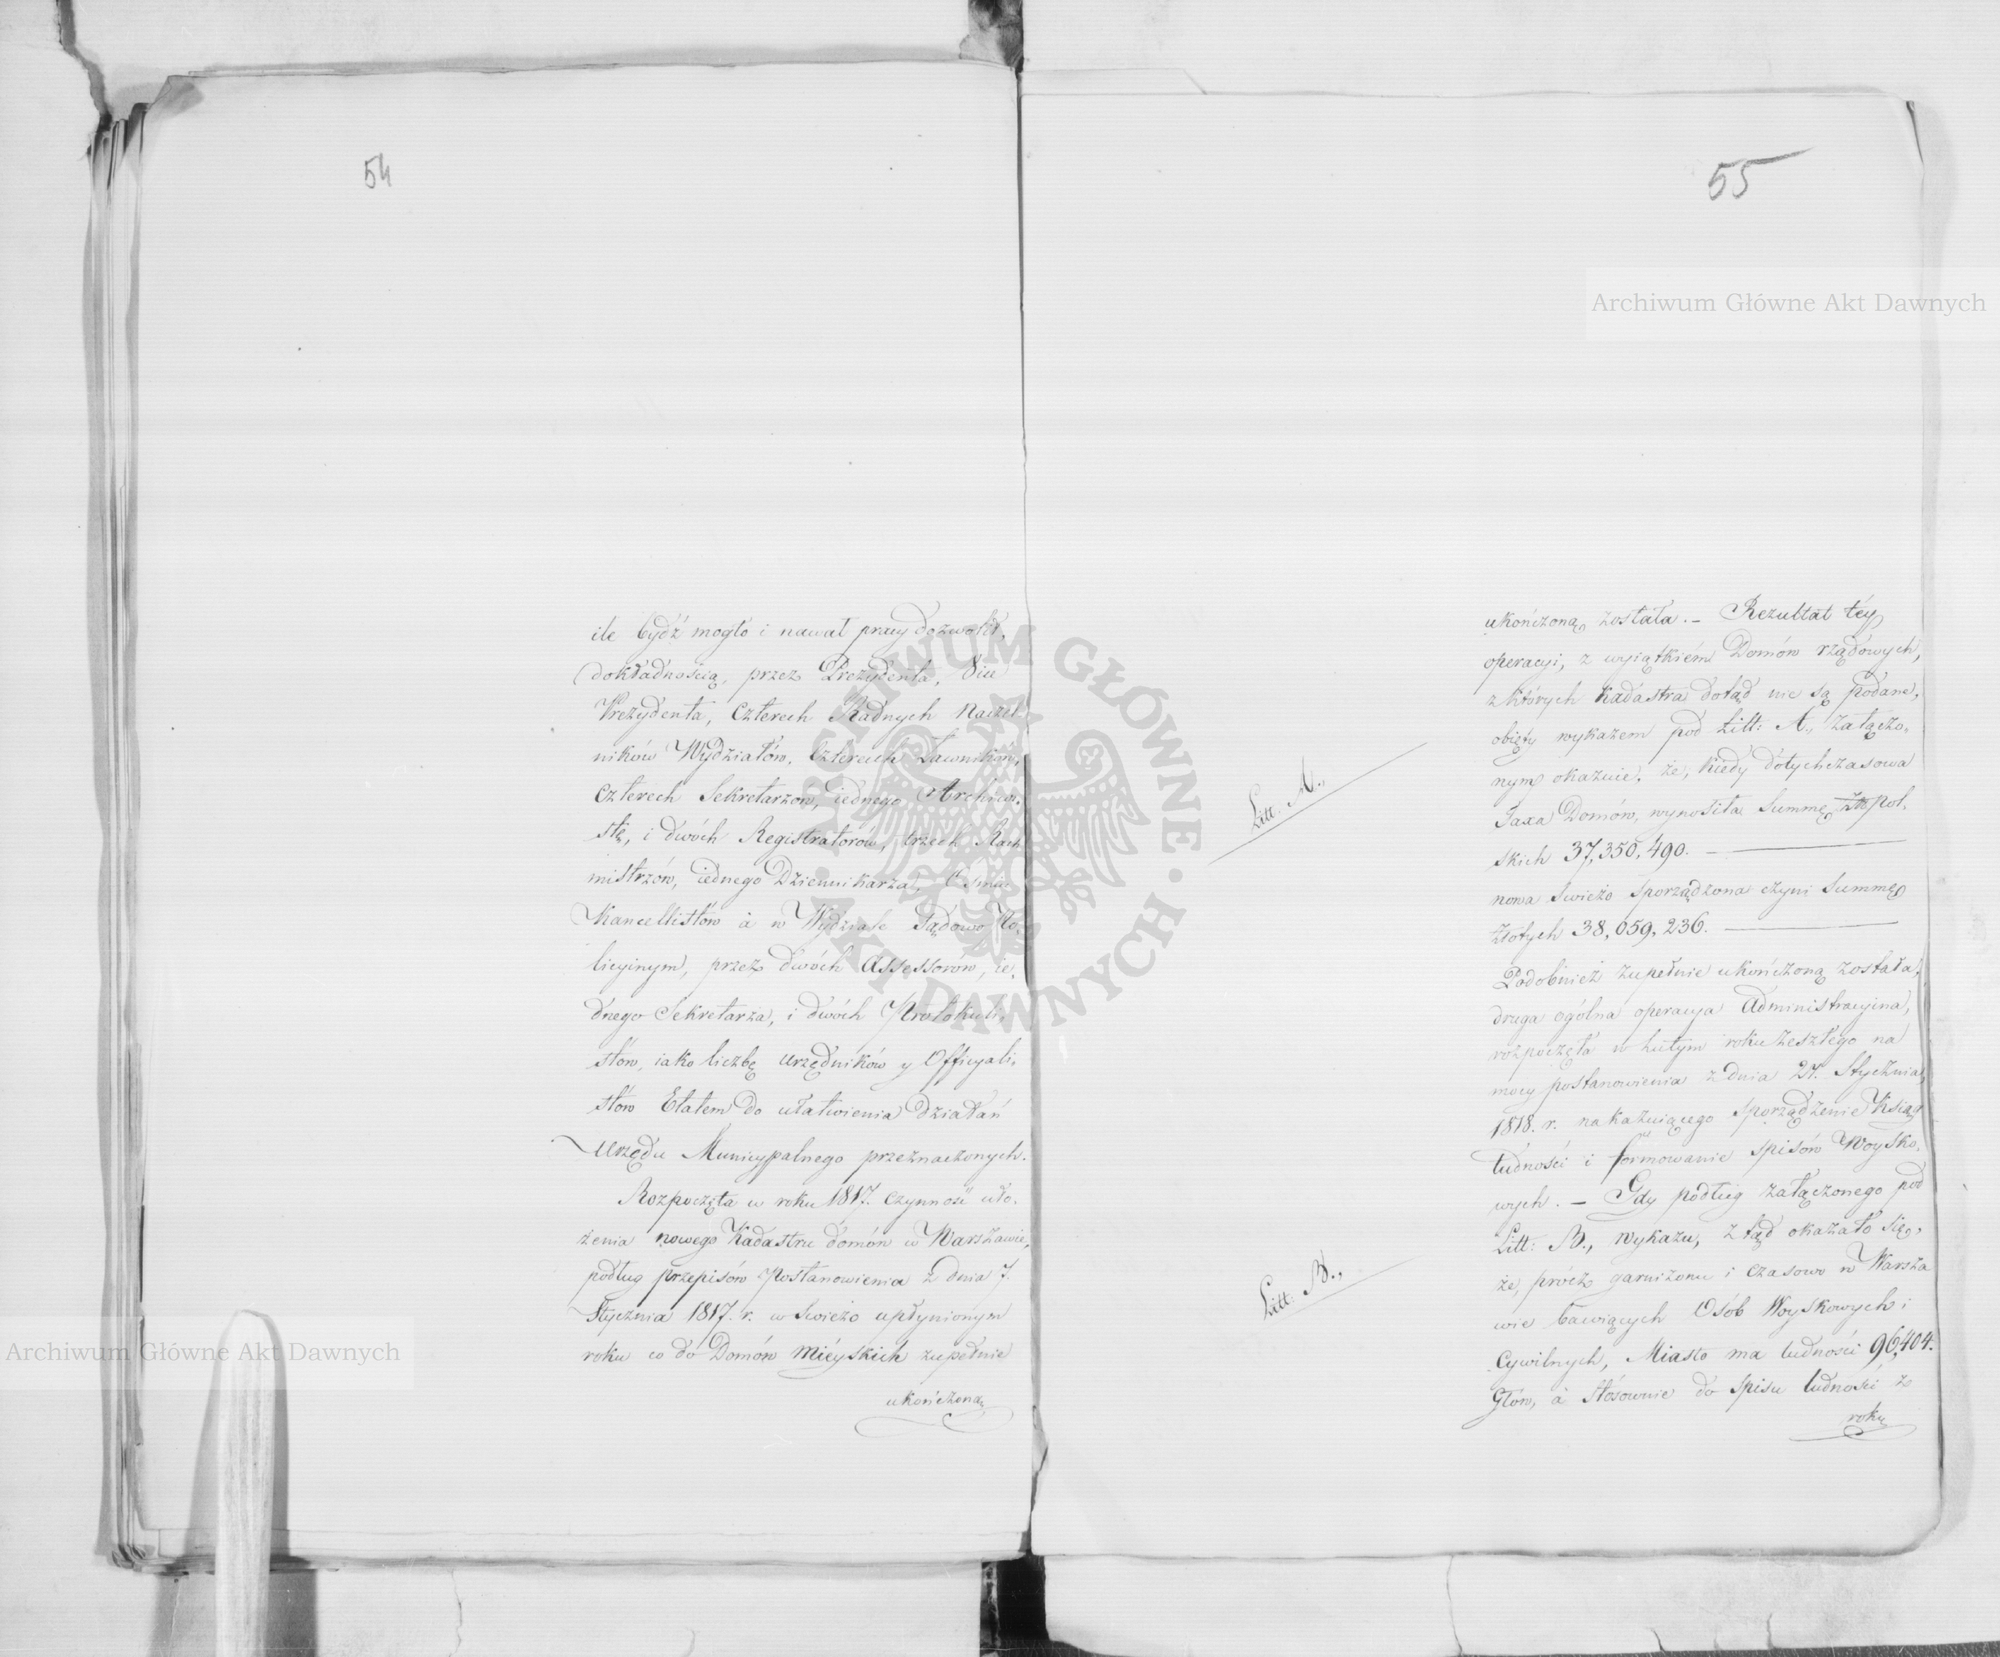 54
ile bydź mogło i nawał pracy dozwolił,
dokładnością, przez Prezydenta, Vice
Prezydenta, Czterech Radnych Naczel-
ników Wydziałów, Czterech Ławników,
Czterech Sekretarzów, iednego Archiwi-
stę, i dwóch Registratorów, trzech Rach
mistrzów, iednego Dziennikarza, Osmiu
Kancellistów à w Wydziale Sądowo Po-
licyinym, przez dwóch Assessorów, ie-
dnego Sekretarza, i dwóch Protokuli-
stów, iako liczbę urzędników y Officyali-
stów Etatem do ułatwienia działań
Urzędu Municypalnego przeznaczonych.
Rozpoczęta w roku 1817. czynność uło-
żenia nowego Kadastru domów w Warszawie,
podług przepisów Postanowienia z dnia 7.
Stycznia 1817. r. w świeżo upłynionym
roku co do Domów Mieyskich zupełnie
ukończoną
55
Archiwum Główne Akt Dawnych
ukończoną została. – Rezultat téy
operacyi, z wyiątkiém Domów rządowych,
z których Kadastra dotąd nie są podane,
obięty wykazem pod Litt: A., załączo-
nym okazuie, że, kiedy dotychczasowa
Taxa Domów, wynosiła Summę Złł pol-
skich 37,350,490. –
nowa świeżo sporządzona czyni Summę
złotych 38,059,236.
Podobnież zupełnie ukończoną została,
druga ogólna operacya Administracyina,
rozpoczęta w lutym roku zeszłego na
mocy postanowienia z dnia 27. Stycznia
1818. r. nakazuiącego sporządzenie Ksiąg
ludności i formowanie spisów Woysko-
wych. – Gdy podług załączonego pod
Litt: B., wykazu, z tąd okazało się,
że, prócz garnizonu i czasowo w Warsza
wie bawiących Osób Woyskowych i
Cywilnych, Miasto ma ludności 96,404.
Głów, à stósownie do spisu ludności z
roku
Litt: A.,
Litt: B.,
ARCHIWUM GŁÓWNE · AKT DAWNYCH ·
Archiwum Główne Akt Dawnych